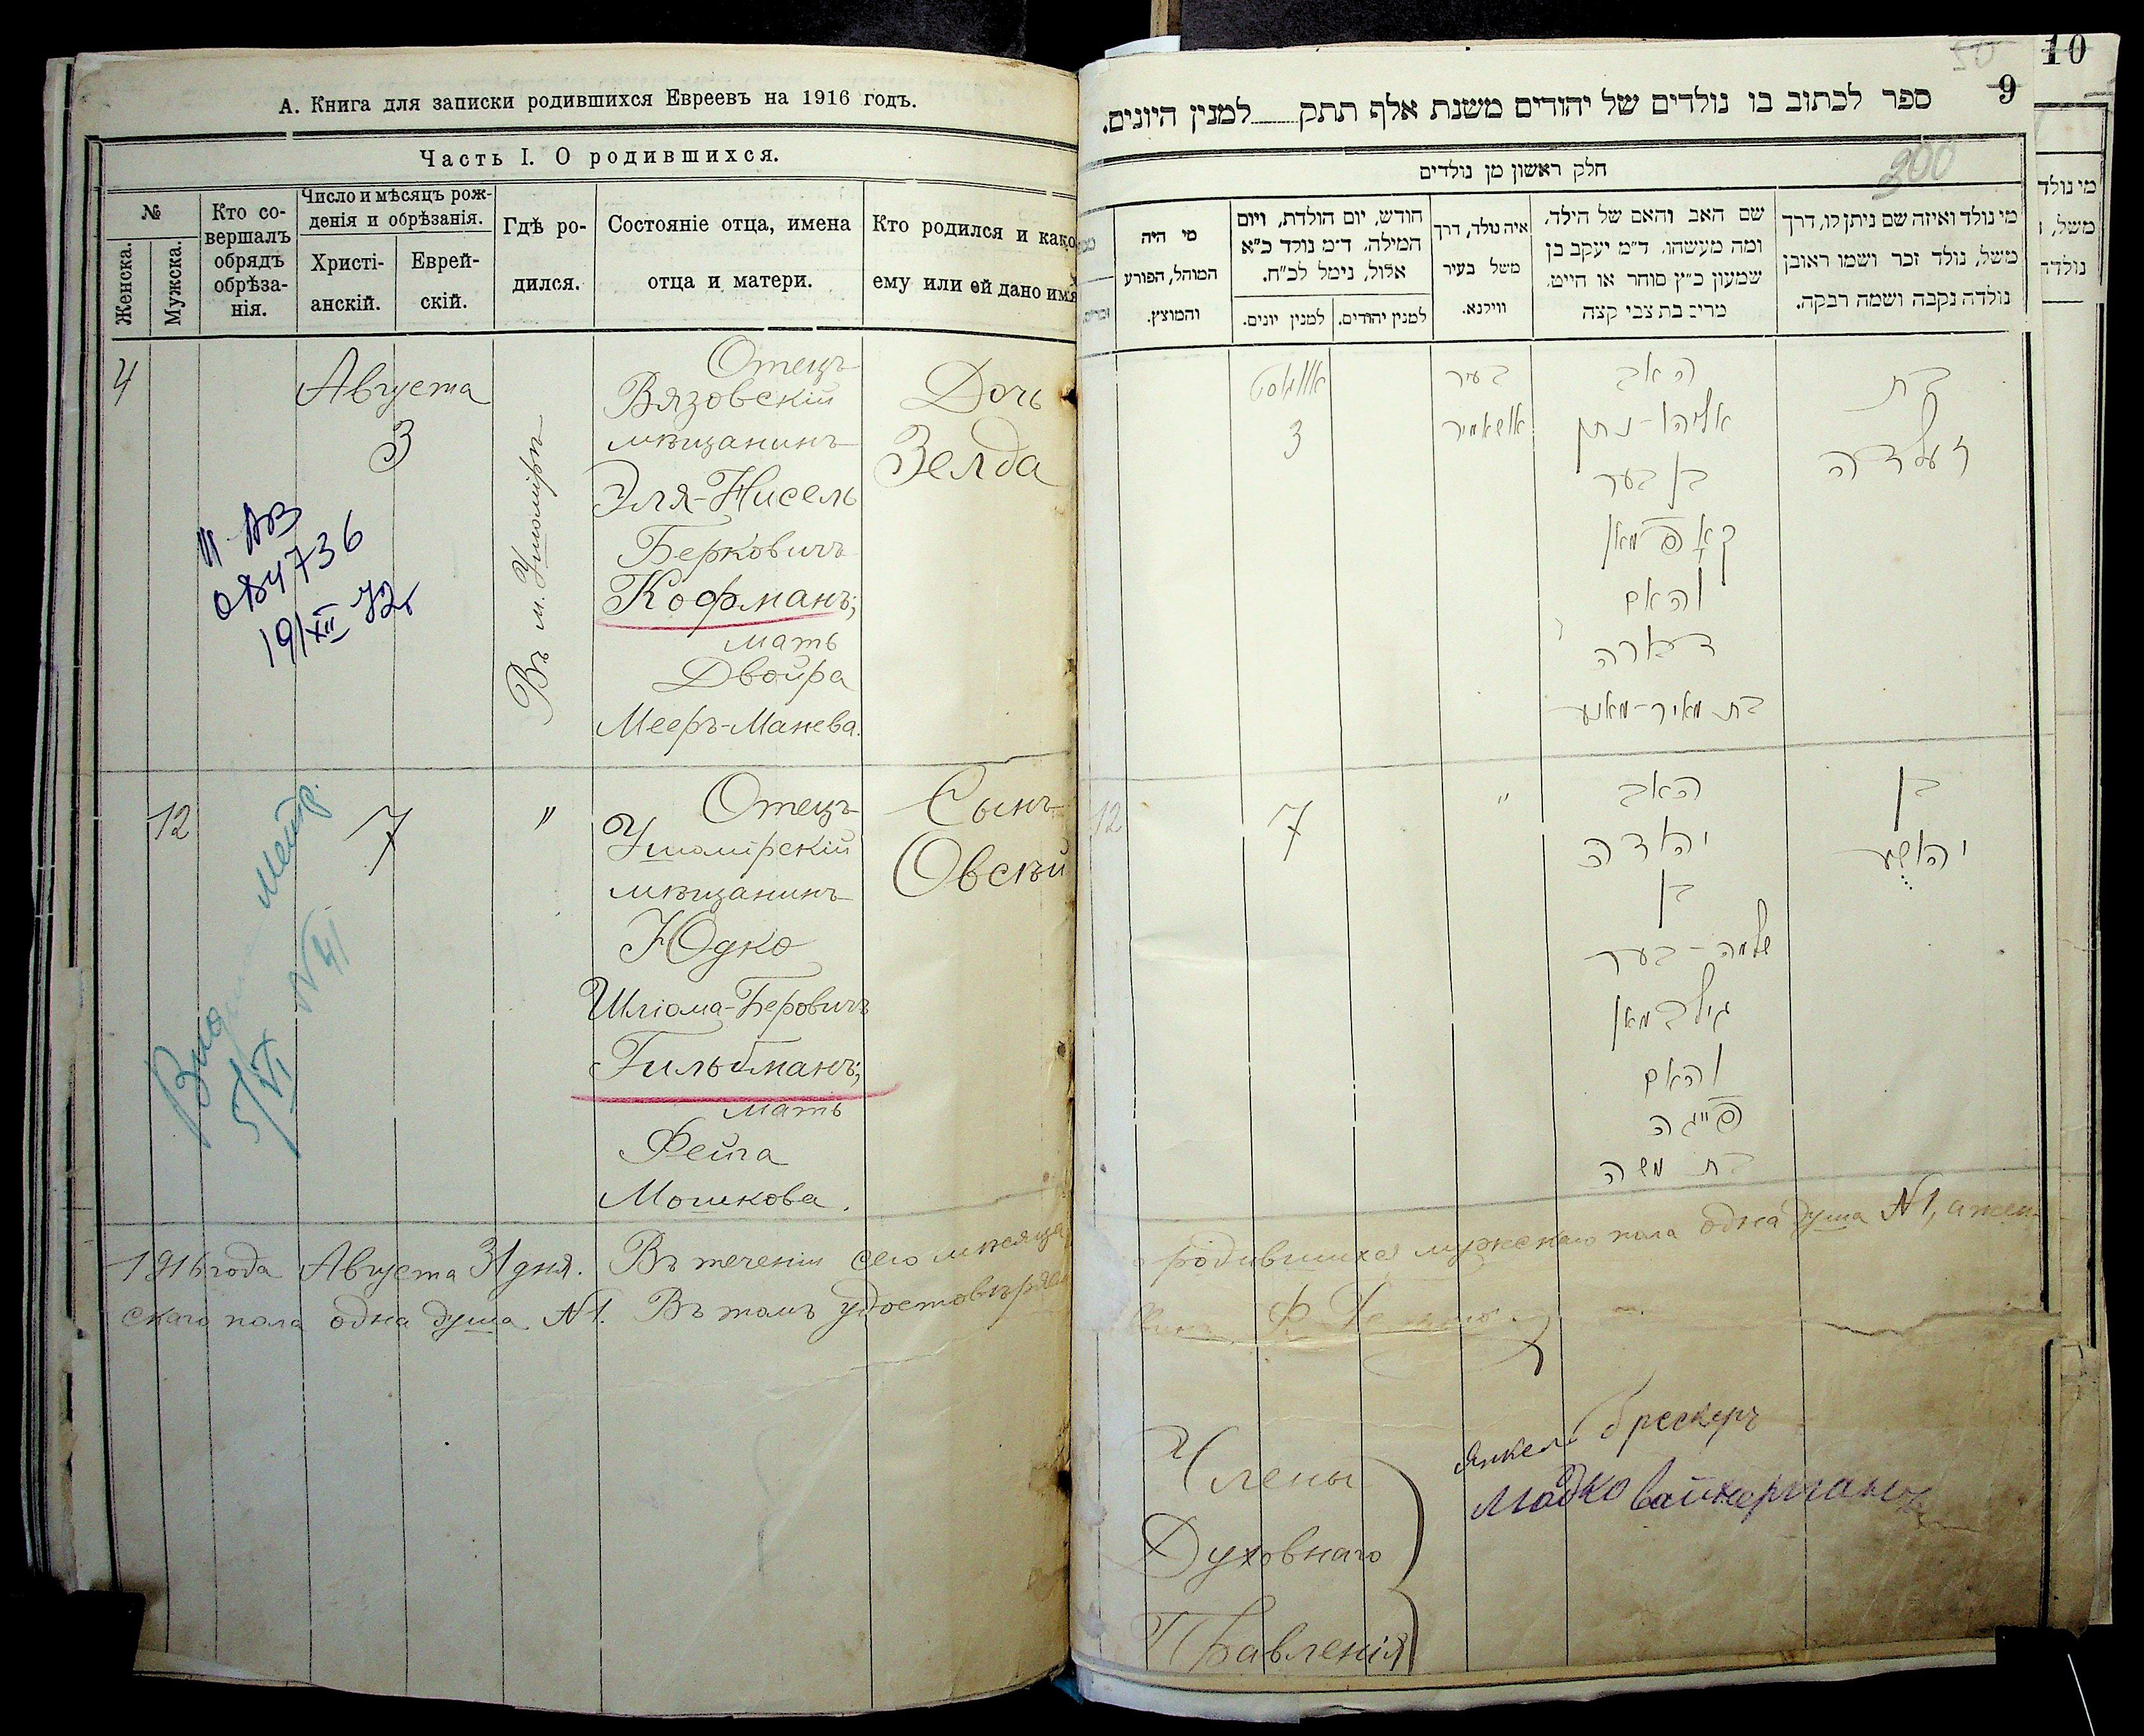 А. Книга для записки родившихся Евреевъ на 1916 годъ.
Часть I. О родившихся.
№
Женска.
Мужска.
Кто со-
вершалъ
обрядъ
обрѣза-
нія.
Число и мѣсяцъ рож-
денія и обрѣзанія.
Христі-
анскій.
Еврей-
скій.
Гдѣ ро-
дился.
Состояніе отца, имена
отца и матери.
Кто родился и како
ему или ей дано имя
4
Августа
3
Въ м. Ушомірѣ
Отецъ
Вязовскій
мѣщанинъ
Эля-Нисель
Берковичъ
Кофманъ;
мать
Двойра
Мееръ-Манева.
Дочь
Зелда
084736
19/XII 72г
12
7
"
Отецъ
Ушомірскій
мѣщанинъ
Юдко
Шліома-Беровичъ
Гильбманъ;
мать
Фейга
Мошкова.
Сынъ
Овсѣй
5/VI N 41
1916 года Августа 31 дня. Въ теченіи сего мѣсяца
скаго пола одна душа N1. Въ томъ удостовѣряем
10
9
ספר לכתוב בו נולדים של יהודים משנת אלף תתק למנין היונים.
חלק ראשון מן נולדים
200
מי נולד ואיזה שם ניתן לו, דרך
משל, נולד זכר ושמו ראובן
נולדה נקבה ושמה רבקה.
שם האב והאם של הילד,
ומה מעשהו. ד״מ יעקב בן
שמעון כ״ץ סוחר או חייט.
מרים בת צבי קצה
איה נולד, דרך
משל בעיר
ווילנא.
חודש, יום הולדת, ויום
המילה. ד״מ נולד כ״א
אלול, נימל לכ״ח.
למנין יהודים.
למנין יונים.
מי היה
המוהל, הפורע
והמוצץ.
בת
זעלדה
האב
אליהו-נתן
בן בער
קאפמאן
והאם
דווארה
בת מאיר-מאנע
בעיר
אושאמיר
אווגוסט
3
בן
יהושע
האב
יהודה
בן
שלמה-בער
גילבמאן
והאם
פייגה
בת משה
"
7
12
родившихся мужскаго пола одна душа N1, а жен-
Члены
Духовнаго
Правленія
Янкель Брескеръ
Мадко Вайнерманъ
מי נולד
משל, נ
נולדה